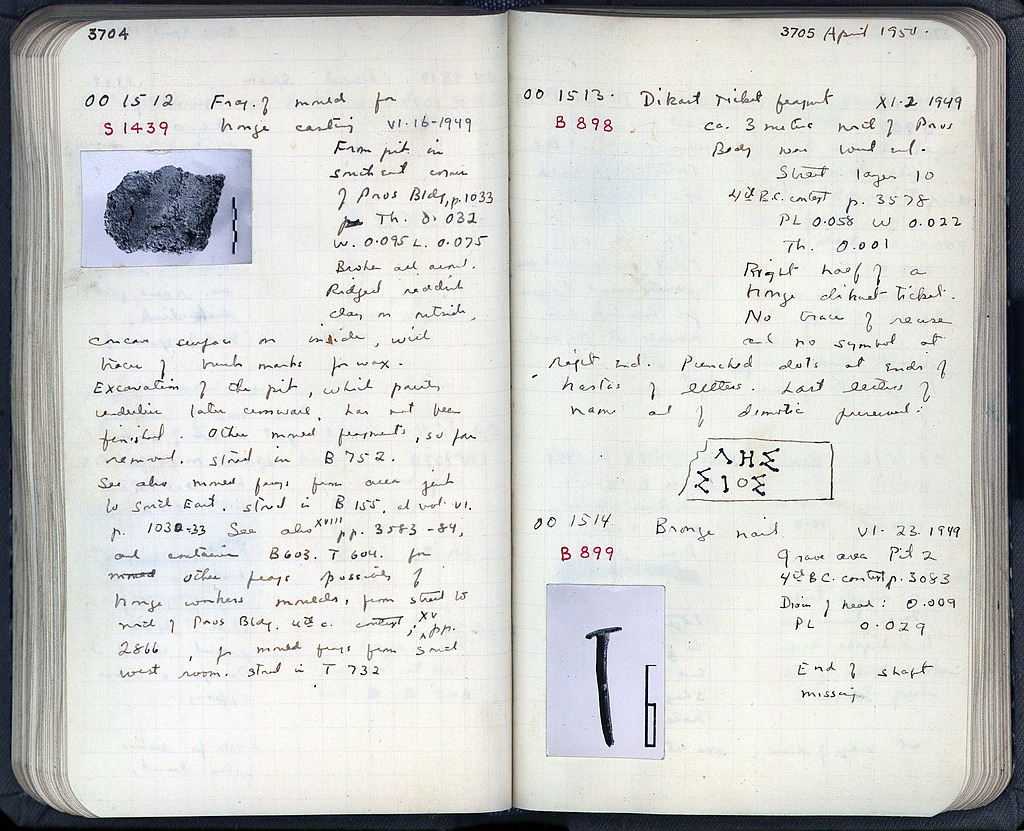 3704
OO 1512 Frag. of mould for
S 1439 bronze casting VI.16-1949
From pit in
south east corner
of Poros Bldg, p.1033
Th. 0.032
W. 0.095 L. 0.075
Broken all around.
Ridged reddish
clay on outside,
concave surface on inside, with
traces of brush marks for wax.
Excavation of the pit, which partly
underlies later cement, has not been
finished. Other mould fragments, so far
removed, stored in B 752.
See also mould frags from area just
to South East, stored in B 155, cf vol. VI.
p. 1030-33 See also XVIII pp. 3583-84,
and container B603. T 604. for
other frags possibly of
bronze workers moulds, from street to
north of Poros Bldg. 4th c. context; XV pp.
2866, for mould frags from south
west room. stored in T 732
3705 April 1950.
OO 1513. Dikast Ticket fragment XI.2 1949
B 898 ca. 3 metres north of Poros
Bldg near west end.
Street layer 10
4th B.C. context p. 3578
PL 0.058 W 0.022
Th. 0.001
Right half of a
bronze dikast ticket.
No trace of reuse
and no symbol at
right end. Punched dots at ends of
hastas of letters. Last letters of
name and of demotic preserved:
ΛΗΣ
ΣΙΟΣ
OO 1514. Bronze nail VI.23.1949
B 899 Grave area Pit 2
4th B.C. context p. 3083
Diam of head: 0.009
PL 0.029
End of shaft
missing